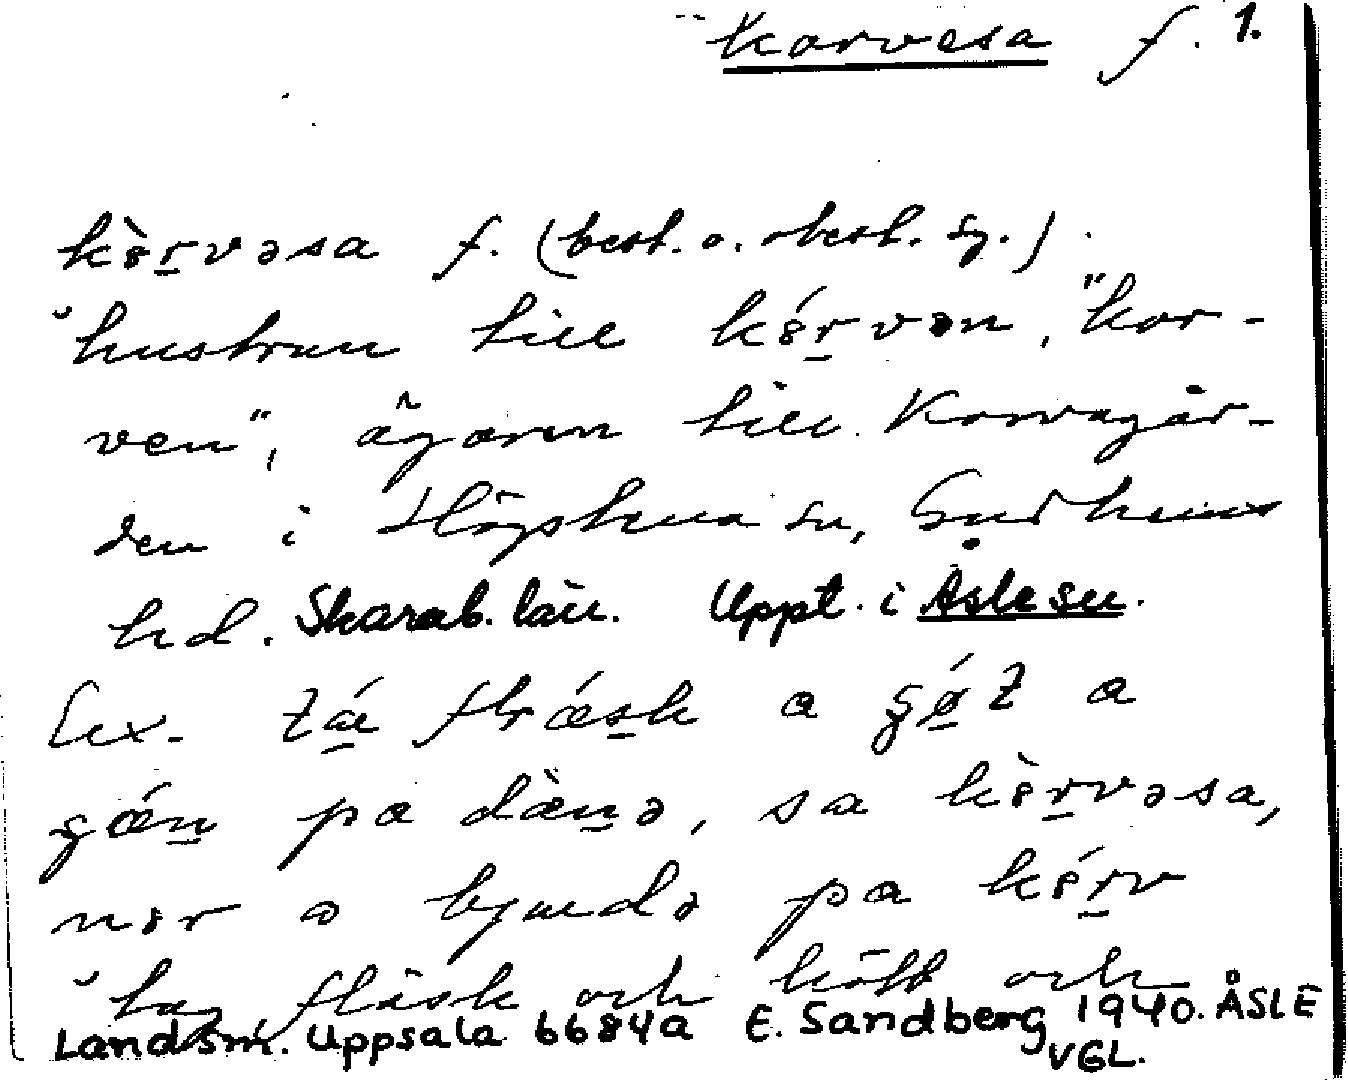 korvesa f. 1.
kè̀r̲vəsa f. (best. o. obest. sg.).
"hustrun till kɞ́r̲vən, "kor-
ven", ägaren till Korvagår-
den i Högstena sn, Gudhems
hd. Skarab. län. Uppt. i Åsle sn.
Ex. tá̲ flǽs̲k a
pa dæ̀n̲ə, sa kɞ̀r̲vəsa,
nɞr a bjudə pa kɞ́r̲v
"ta fläsk och kött och
Landsm. Uppsala 6684a E. Sandberg 1940. ÅSLE
VGL.